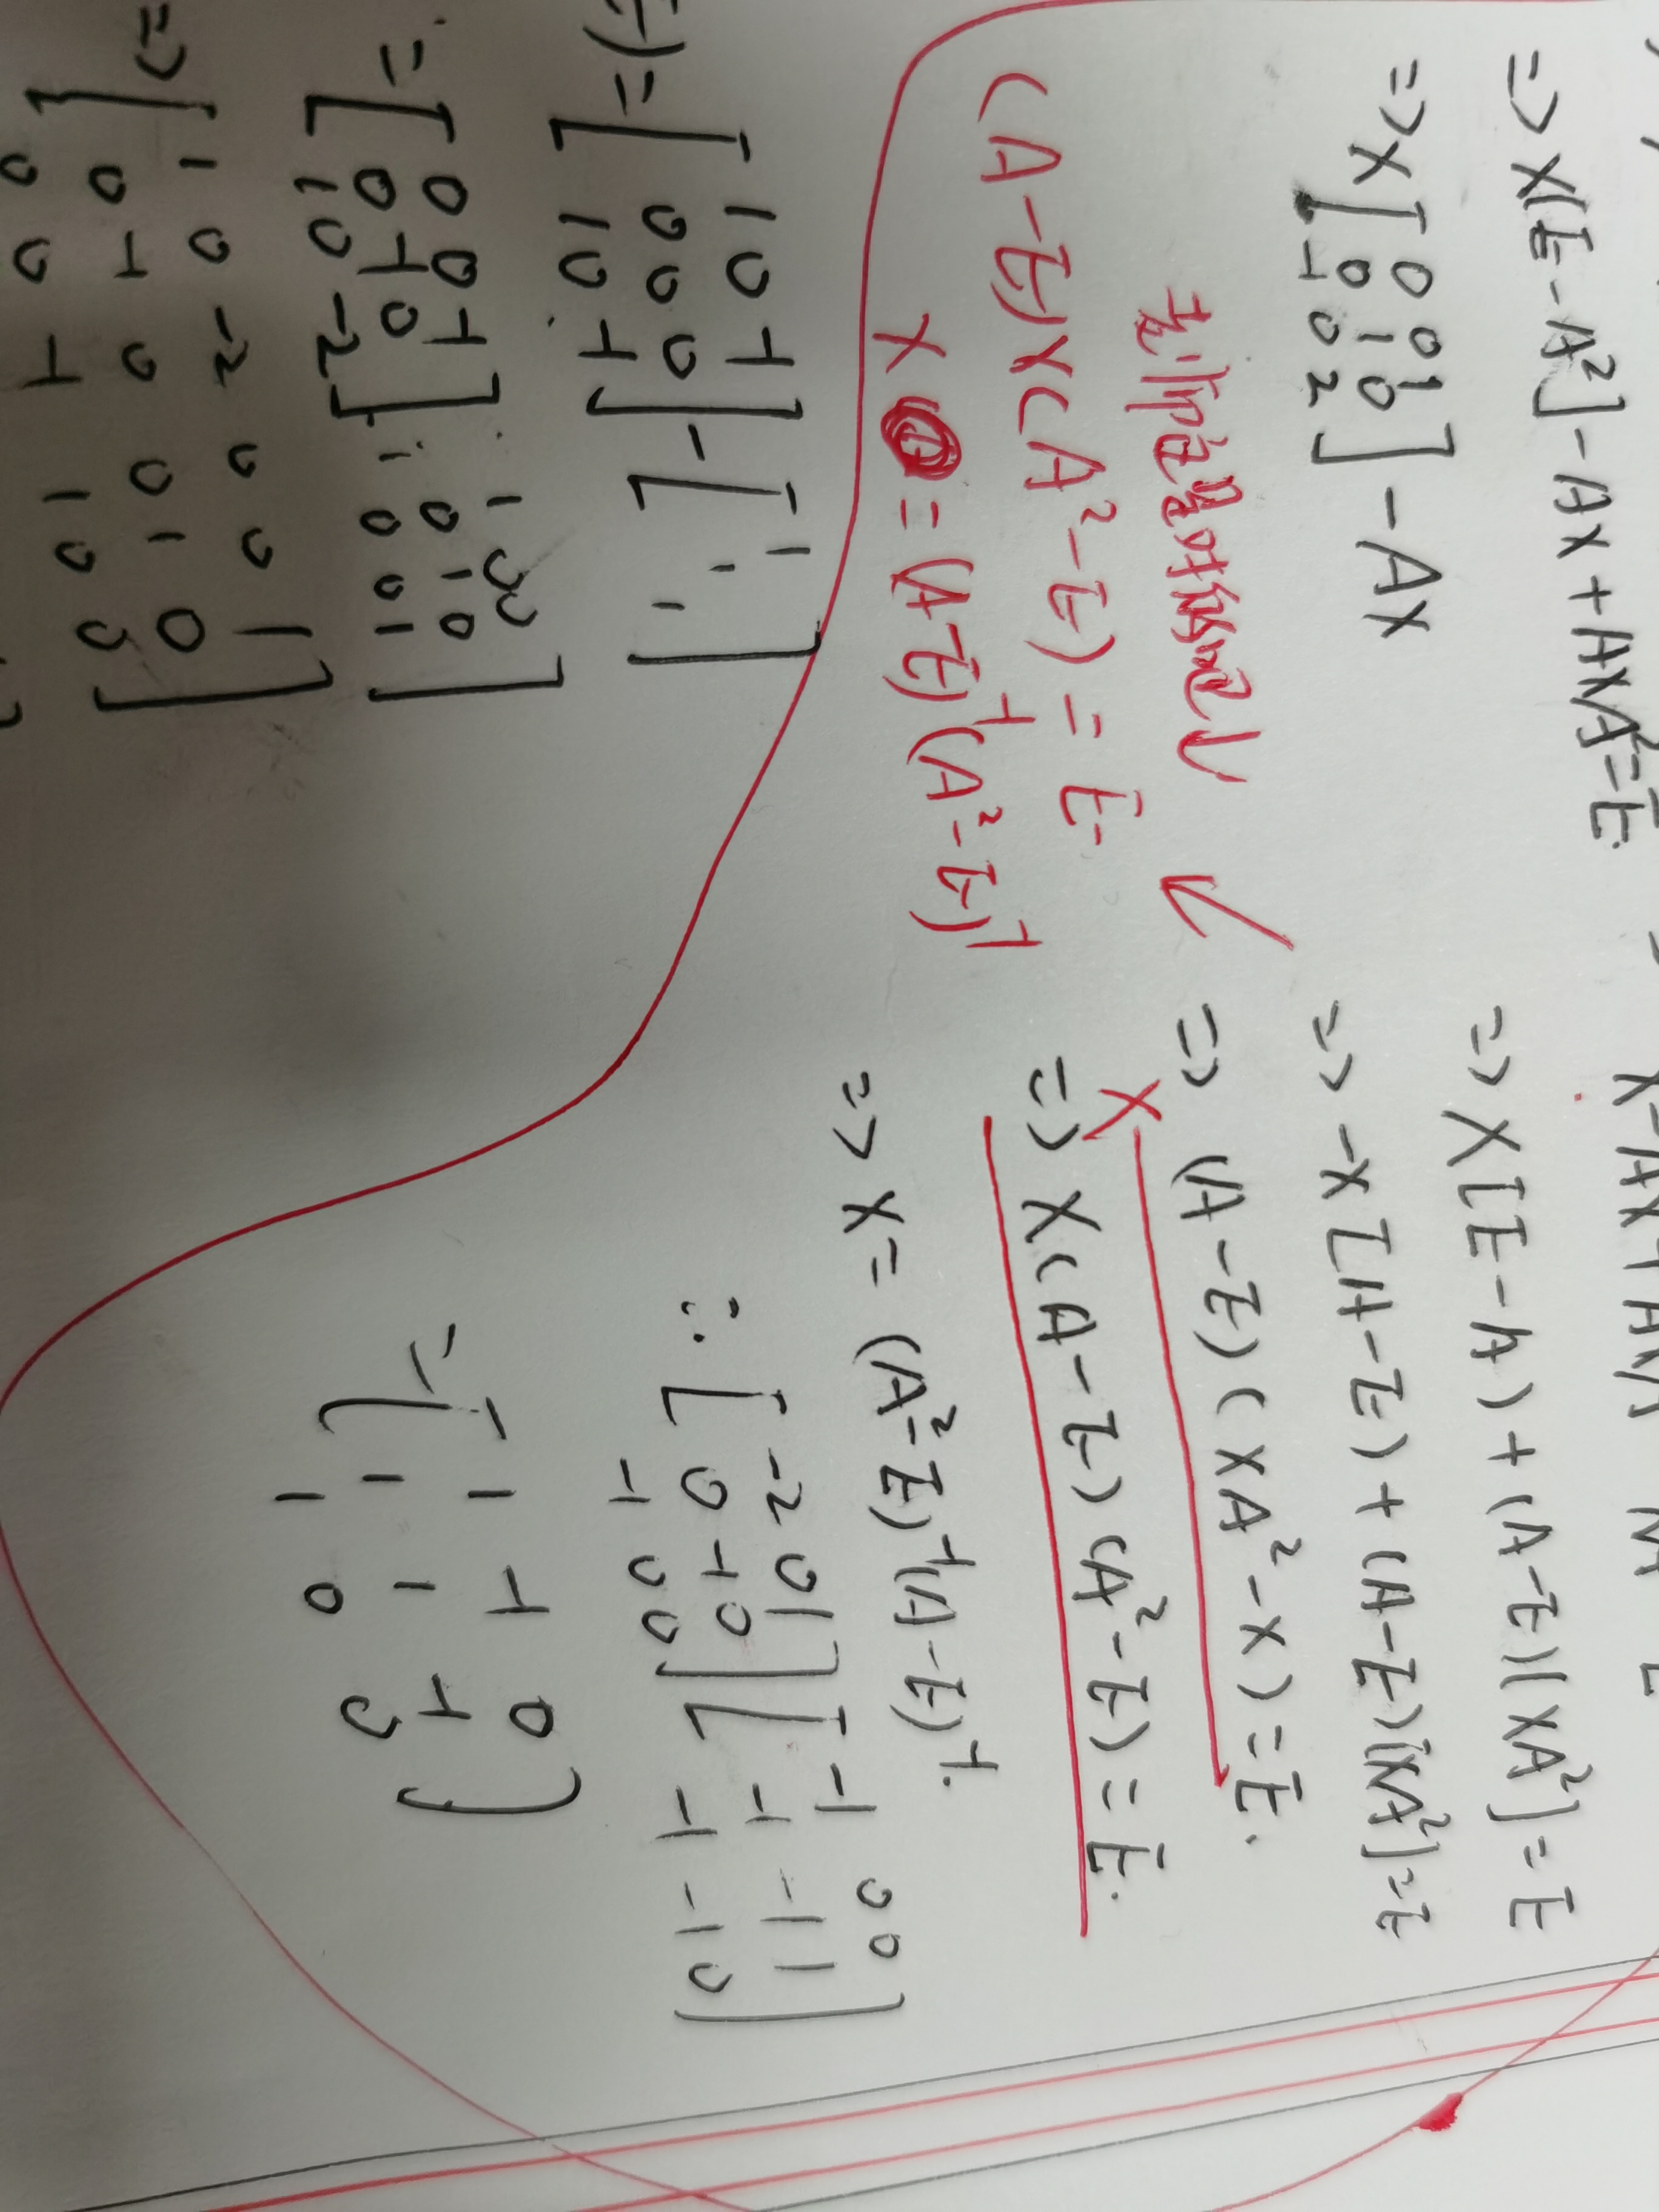 => X[E-A²]-AX+AXA²=E
=> X[0 0 1
0 1 0
-1 0 2] -AX
(A-E)X(A²-E)=E.
X = (A-E)⁻¹(A²-E)⁻¹
=> X[E-A)+(A-E)(XA²]=E
=> -X[A-E)+(A-E)[XA²]=E
=> (A-E)(XA²-X)=E.
X
=> X(A-E)(A²-E)=E.
=> X=(A²-E)⁻¹(A-E)⁻¹.
∴ [-2 0 1
0 -1 0
-1 0 0] [
-1
-1 -1
-1 -1 0]
= [1 -1 0
1 1 -1
1 0 0]
= [1 0 -1
0 0 0
1 0 -1] - [1
1
1]
= [0 0 -1
0 -1 0
1 0 -2
1 0 0
0 1 0
0 0 1]
=> [1 0 -2 0 0 1
0 -1 0 0 1 0
0 0 -1 1 0 0